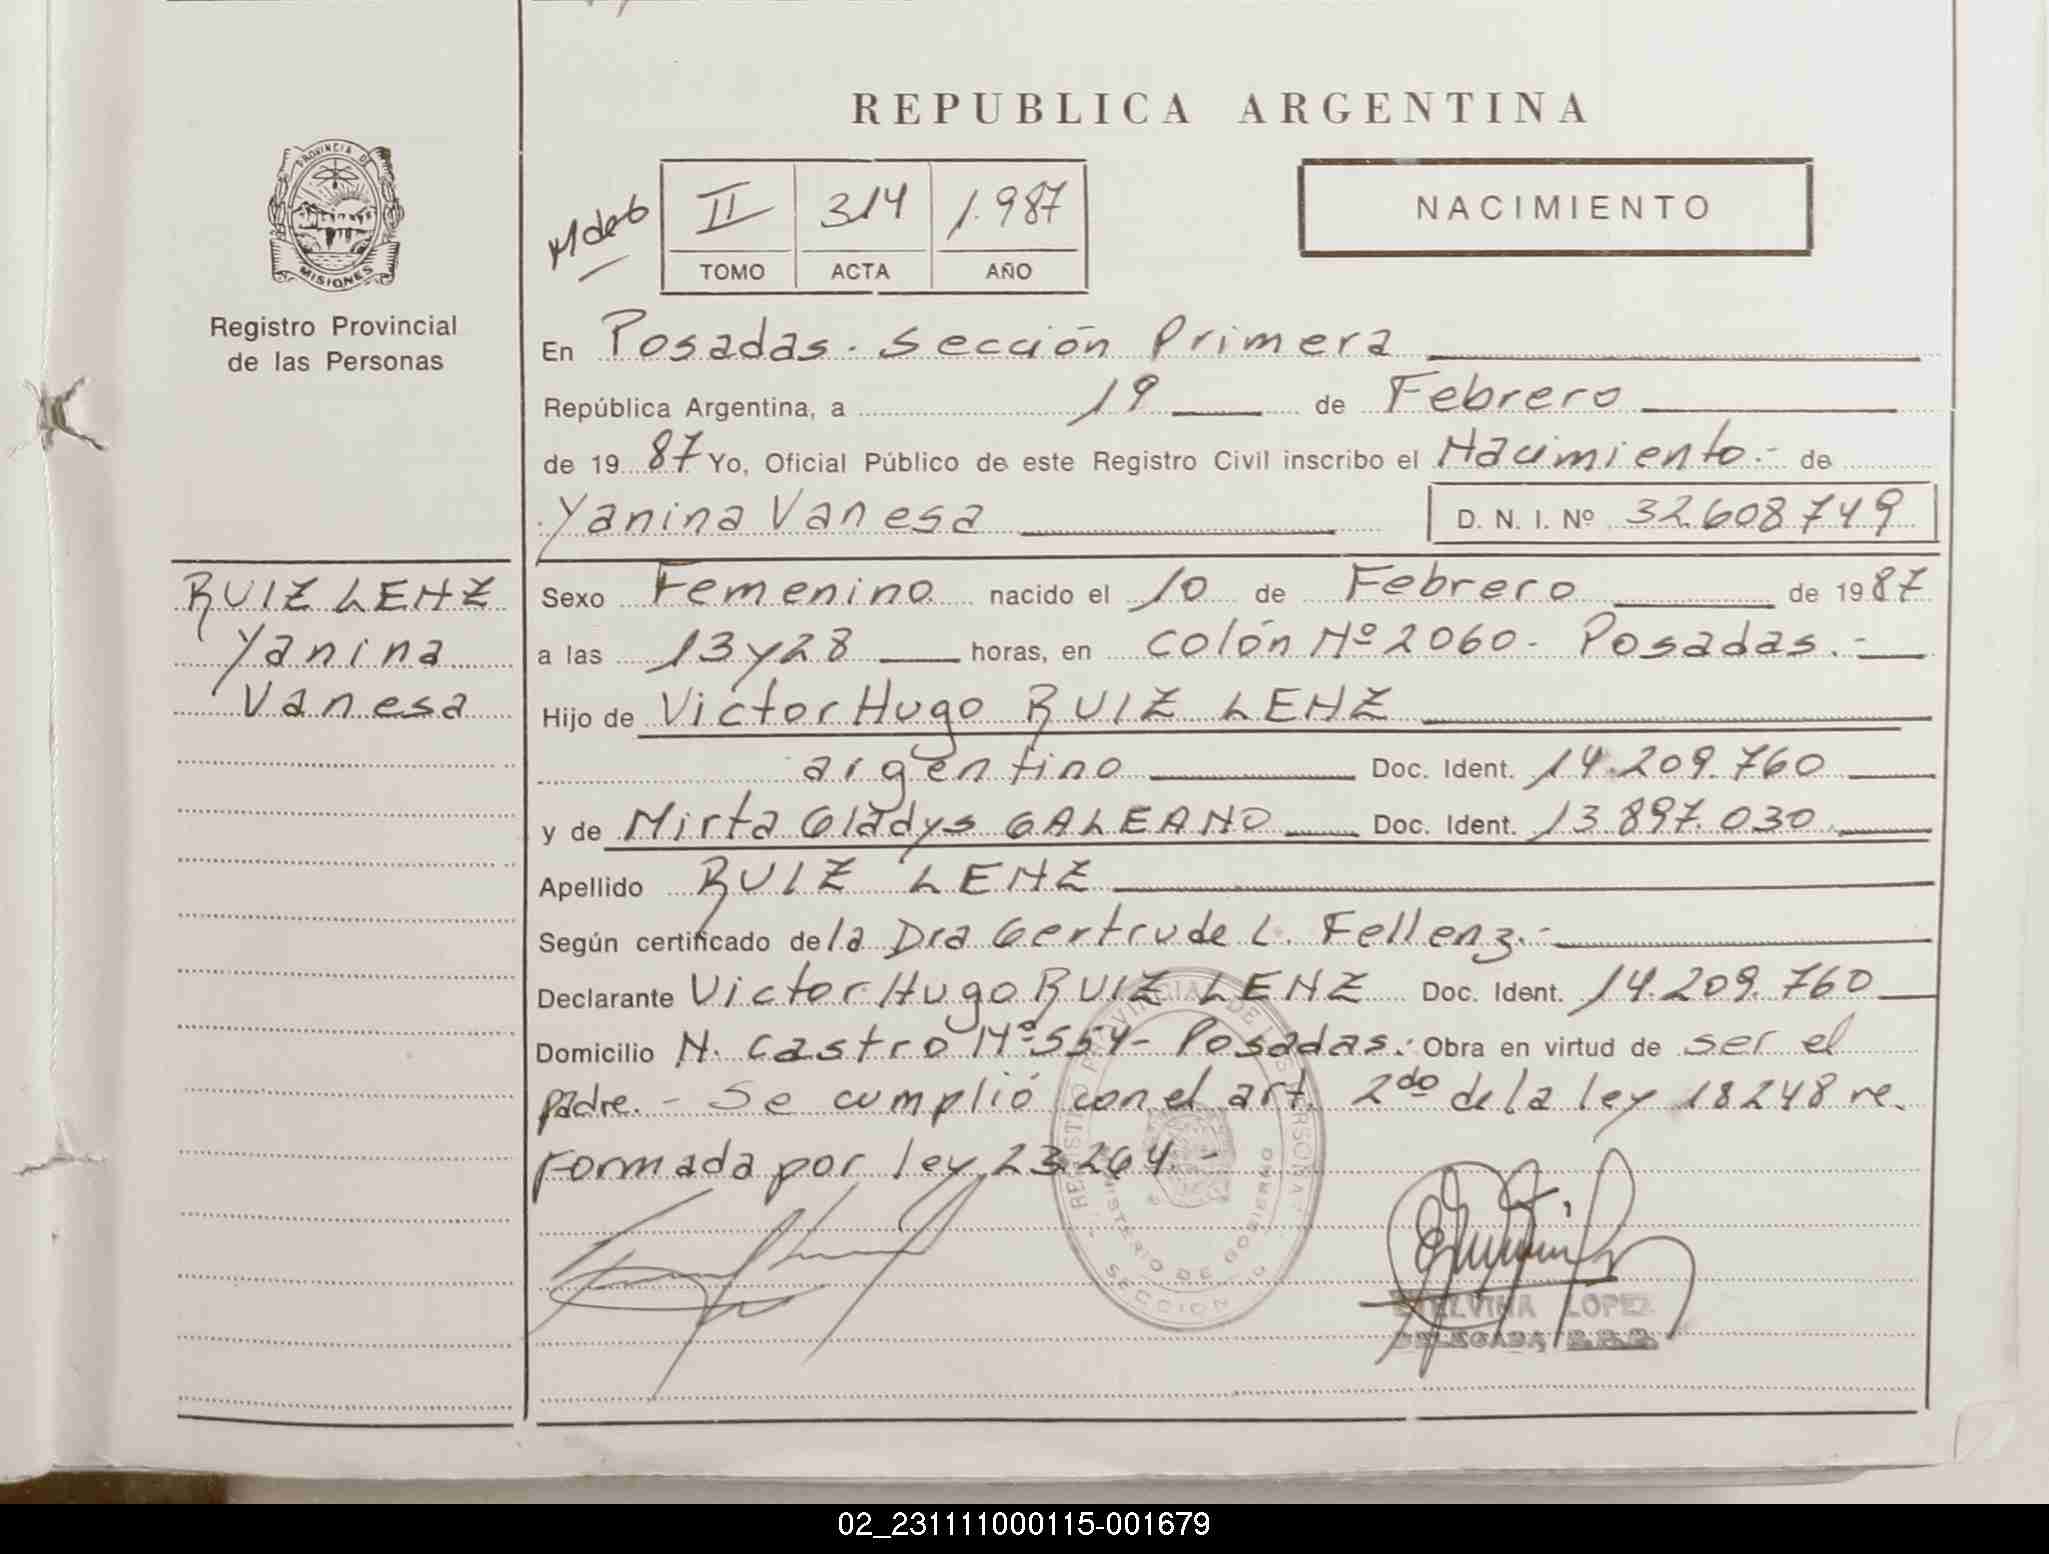 REPUBLICA ARGENTINA
PROVINCIA DE
MISIONES
Registro Provincial
de las Personas
II 314 1.987
TOMO ACTA AÑO
NACIMIENTO
En Posadas. Sección Primera
República Argentina, a 19 de Febrero
de 1987 Yo, Oficial Público de este Registro Civil inscribo el Nacimiento.- de
Yanina Vanesa D. N. I. Nº 32.608749
RUIZ LENZ
Yanina
Vanesa
Sexo Femenino nacido el 10 de Febrero de 1987
a las 13 y 28 horas, en Colón Nº 2060- Posadas.-
Hijo de Victor Hugo RUIZ LENZ
argentino Doc. Ident. 14.209.760
y de Mirta Gladys GALEANO Doc. Ident. 13.897.030
Apellido RUIZ LENZ
Según certificado de la Dra Gertrude L. Fellenz.-
Declarante Victor Hugo RUIZ LENZ Doc. Ident. 14.209.760
Domicilio N. Castro Nº 554- Posadas. Obra en virtud de ser el
padre.- Se cumplió con el art. 2do de la ley 18248 re.
formada por ley 23.264.-
REGISTRO PROVINCIAL DE LAS PERSONAS
MINISTERIO DE GOBIERNO
SECCION
LOPEZ
DELEGADA
02_231111000115-001679